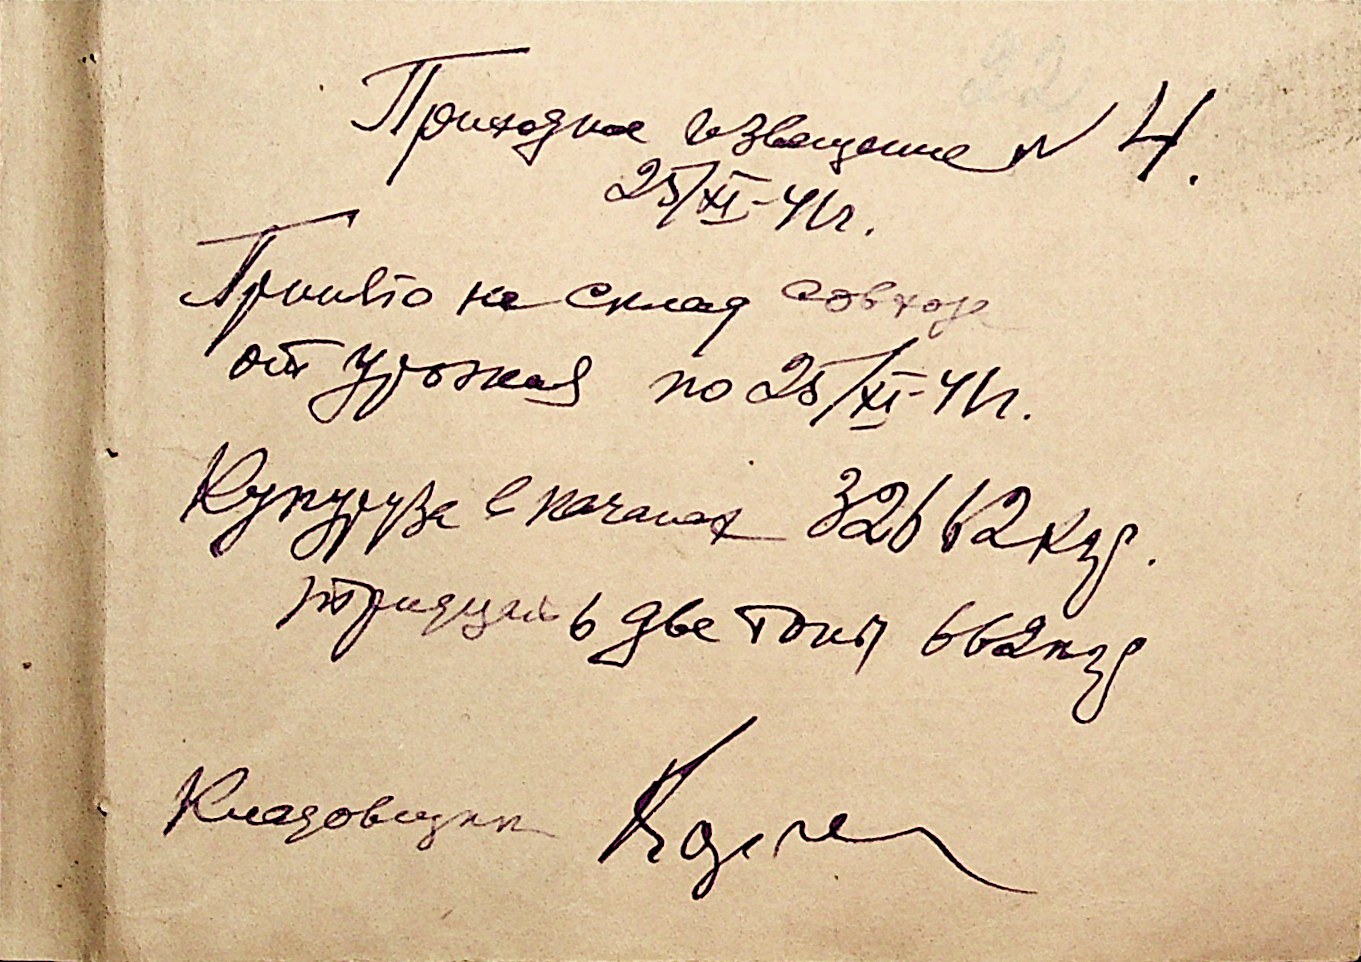 Приходное извещение № 4.
25/XI-41г.
Принято на склад совхоза
от урожая по 25/XI-41г.
Кукуруза в початках 32662 кгр.
тридцать две тоны 662 кгр
Кладовщик